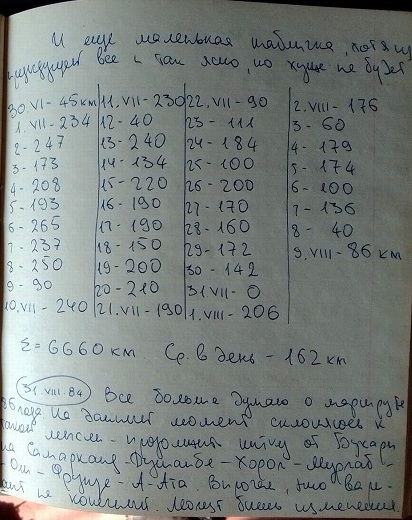 И еще маленькая табличка, хотя из
предыдущей все и так ясно, но хуже не будет
30.VI - 45 км 11.VII - 230 22.VII - 90 2.VIII - 176
1.VII - 234 12 - 40 23 - 111 3 - 60
2 - 247 13 - 240 24 - 184 4 - 179
3 - 173 14 - 134 25 - 100 5 - 174
4 - 208 15 - 220 26 - 200 6 - 100
5 - 193 16 - 190 27 - 170 7 - 136
6 - 265 17 - 190 28 - 160 8 - 40
7 - 237 18 - 150 29 - 172 9.VIII - 86 км
8 - 250 19 - 200 30 - 142
9 - 90 20 - 210 31.VII - 0
10.VII - 240 21.VII - 190 1.VIII - 206
Σ = 6660 км Ср. в день - 162 км
31.VIII.84 Все больше думаю о маршруте
86 года. На данный момент склоняюсь к
такой мысли - продолжить нитку от Бухары
на Самарканд - Душанбе - Хорог - Мургаб -
- Ош - Фрунзе - А-Ата. Впрочем, это вари-
ант не конечный. Могут быть изменения.